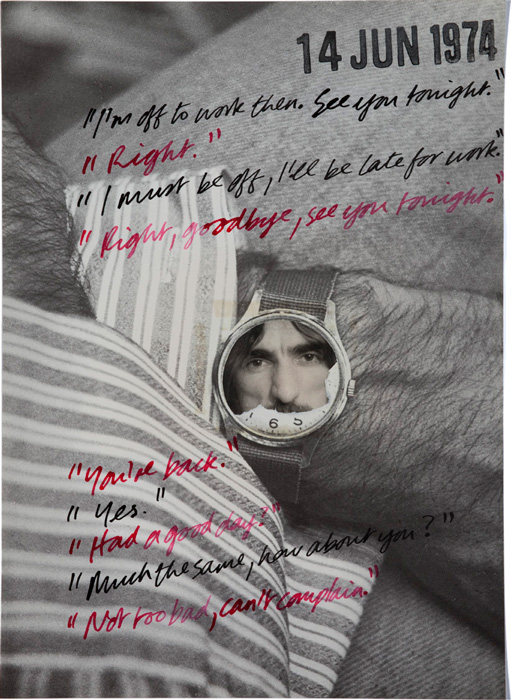 14 JUN 1974
"I'm off to work then. See you tonight."
"Right."
"I must be off, I'll be late for work."
"Right, goodbye, see you tonight."
6 5
"You're back."
"Yes."
"Had a good day?"
"Much the same, how about you?"
"Not too bad, can't complain."